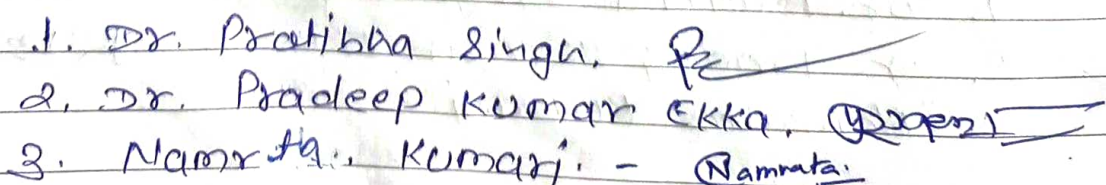 1. Dr. Pratibha Singh.
2. Dr. Pradeep Kumar Ekka.
3. Namrata. Kumari. - Namrata.